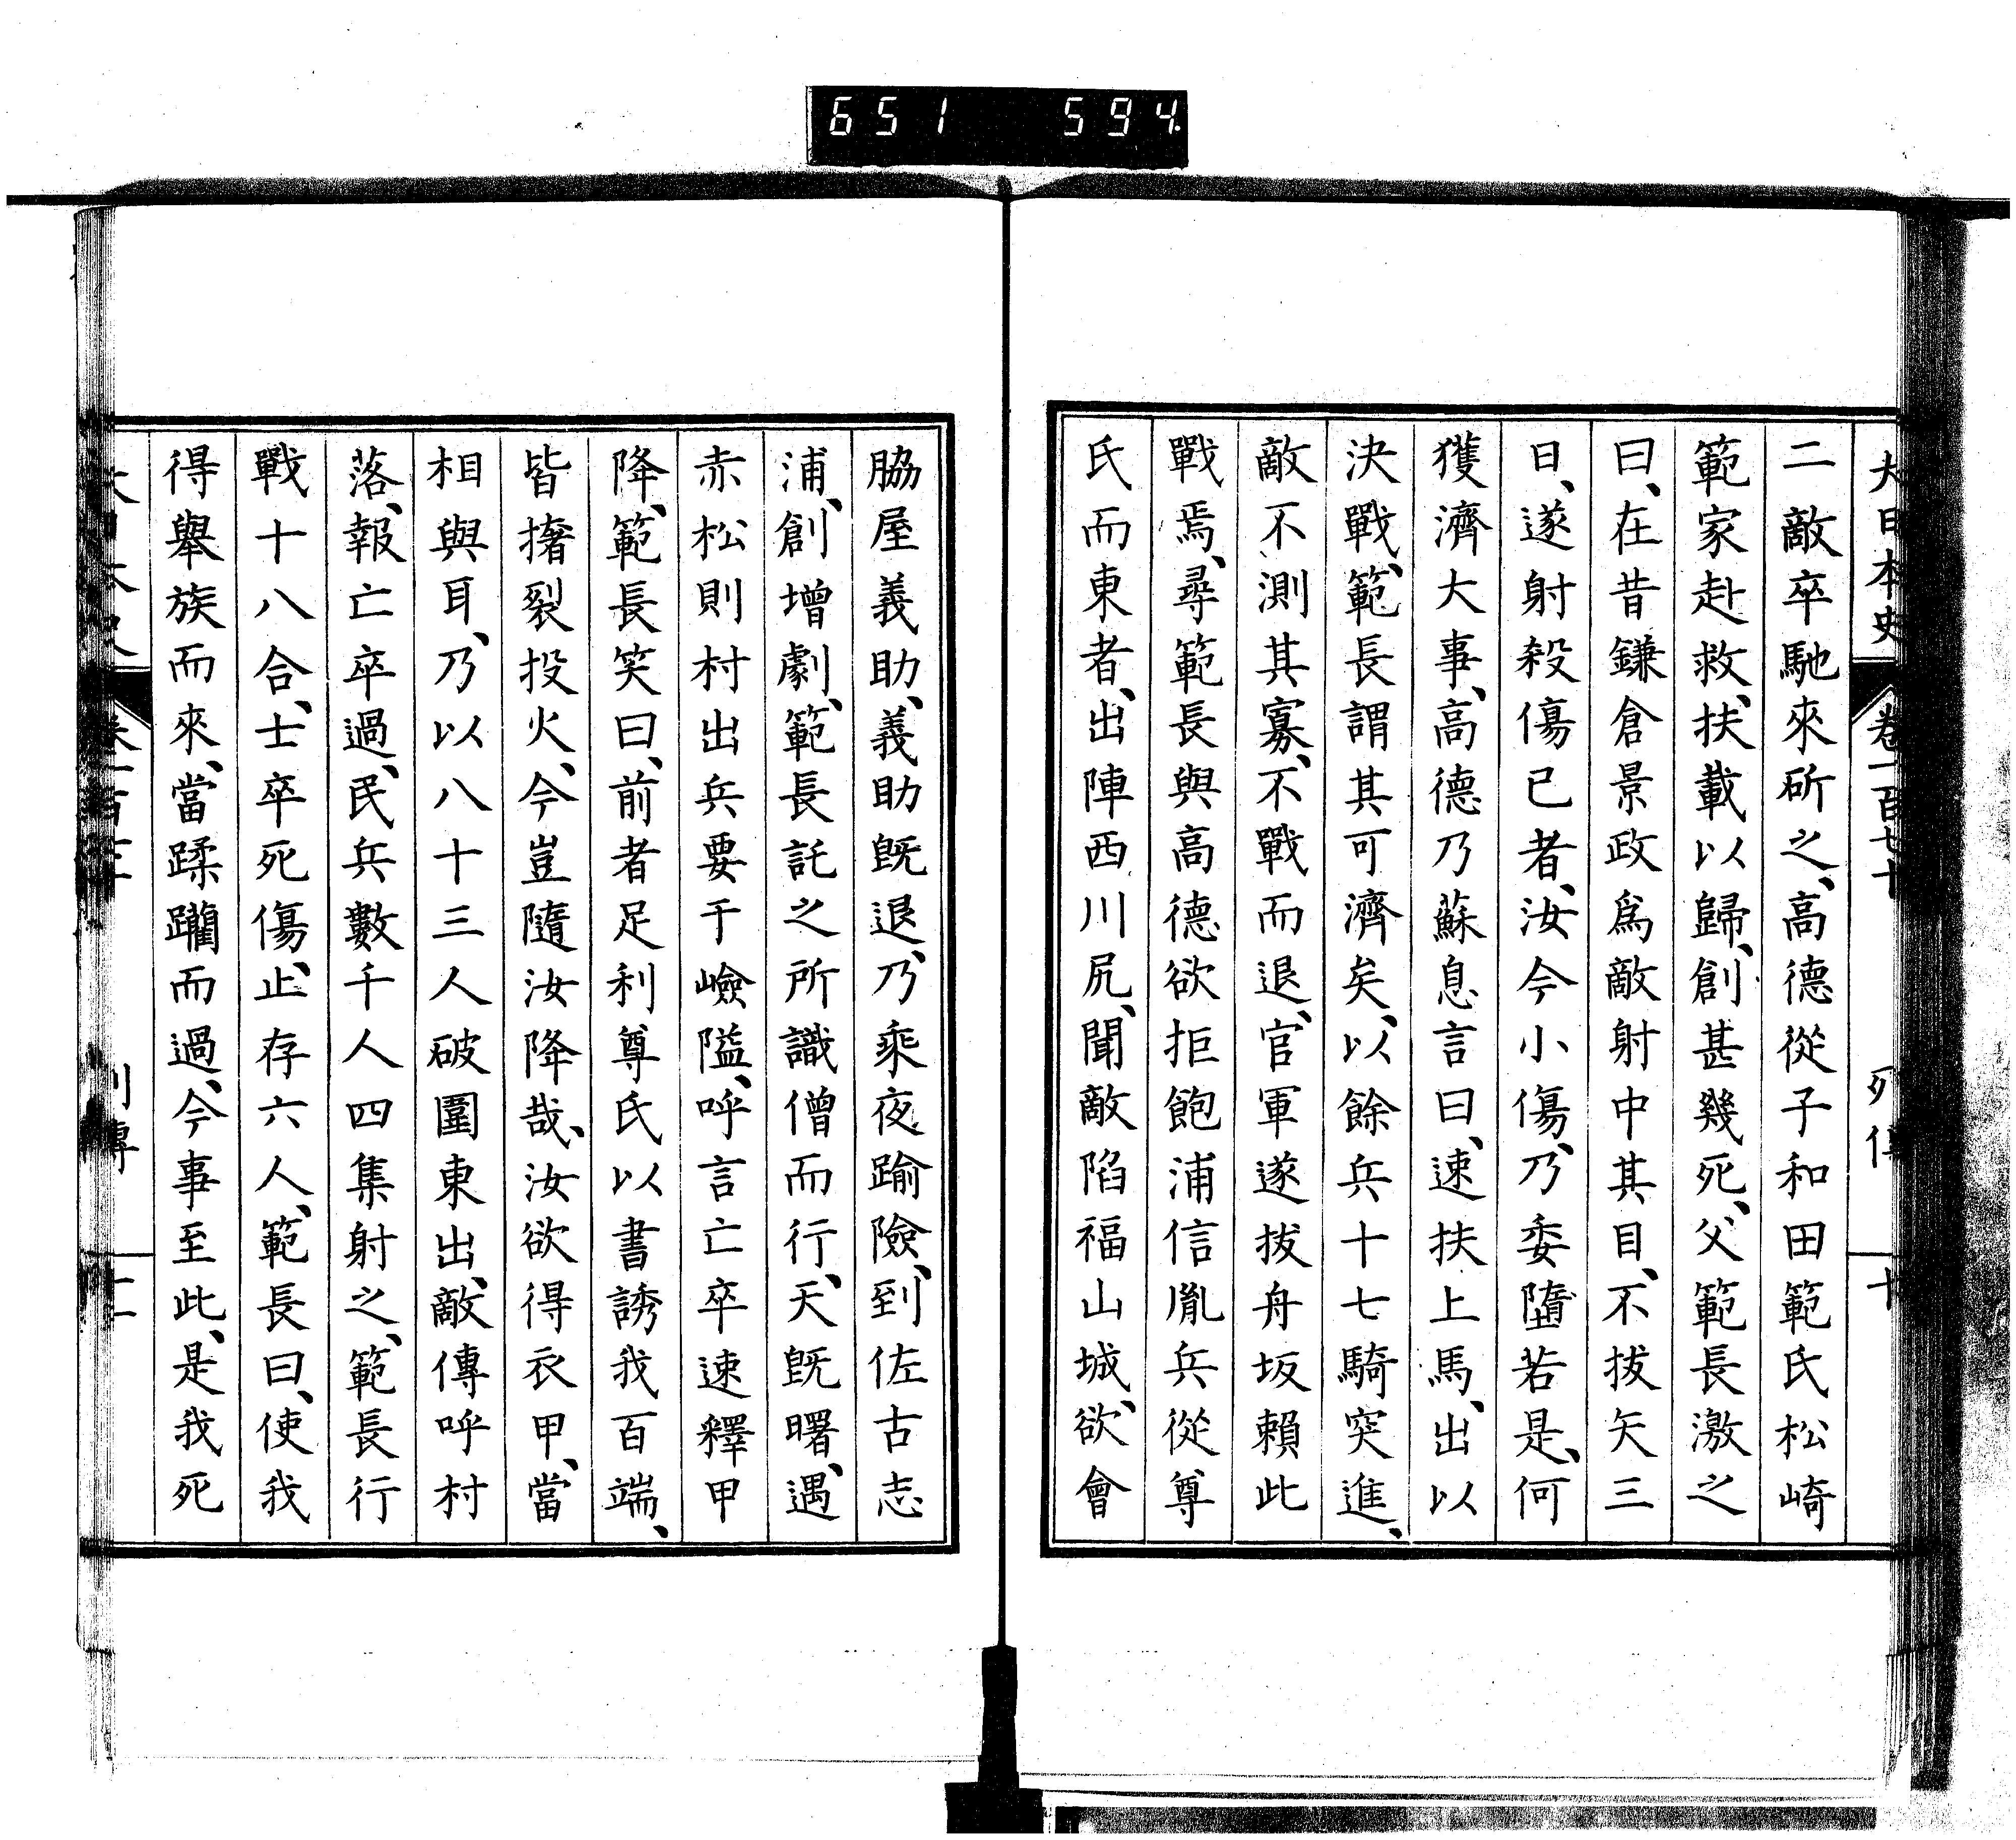 651 594
大日本史 卷一百七十 列傳 十
二敵卒馳來斫之、高德從子和田範氏松崎
範家赴救、扶載以歸、創甚幾死、父範長激之
曰、在昔鎌倉景政爲敵射中其目、不拔矢三
日、遂射殺傷已者、汝今小傷、乃委墮若是、何
獲濟大事、高德乃蘇息言曰、速扶上馬、出以
決戰、範長謂其可濟矣、以餘兵十七騎突進、
敵不測其寡、不戰而退、官軍遂拔舟坂賴此
戰焉、尋範長與高德欲拒飽浦信胤兵從尊
氏而東者、出陣西川尻、聞敵陷福山城、欲會
脇屋義助、義助既退、乃乘夜踰險、到佐古志
浦、創增劇、範長託之所識僧而行、天既曙、遇
赤松則村出兵要于嶮隘、呼言亡卒速釋甲
降、範長笑曰、前者足利尊氏以書誘我百端、
皆撦裂投火、今豈隨汝降哉、汝欲得衣甲、當
相與耳、乃以八十三人破圍東出、敵傳呼村
落、報亡卒過、民兵數千人四集射之、範長行
戰十八合、士卒死傷、止存六人、範長曰、使我
得舉族而來、當蹂躪而過、今事至此、是我死